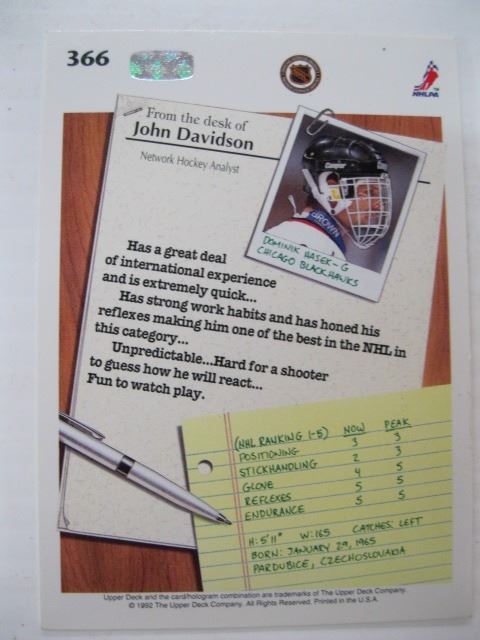 366
NHLPA
From the desk of
John Davidson
Network Hockey Analyst
Cooper
BROWN
DOMINIK HASEK - G
CHICAGO BLACKHAWKS
Has a great deal
of international experience
and is extremely quick...
Has strong work habits and has honed his
reflexes making him one of the best in the NHL in
this category...
Unpredictable...Hard for a shooter
to guess how he will react...
Fun to watch play.
(NHL RANKING 1-5) NOW PEAK
POSITIONING 3 3
STICKHANDLING 2 3
GLOVE 4 5
REFLEXES 5 5
ENDURANCE 5 5
H: 5'11" W: 165 CATCHES: LEFT
BORN: JANUARY 29, 1965
PARDUBICE, CZECHOSLOVAKIA
Upper Deck and the card/hologram combination are trademarks of The Upper Deck Company.
© 1992 The Upper Deck Company. All Rights Reserved. Printed in the U.S.A.